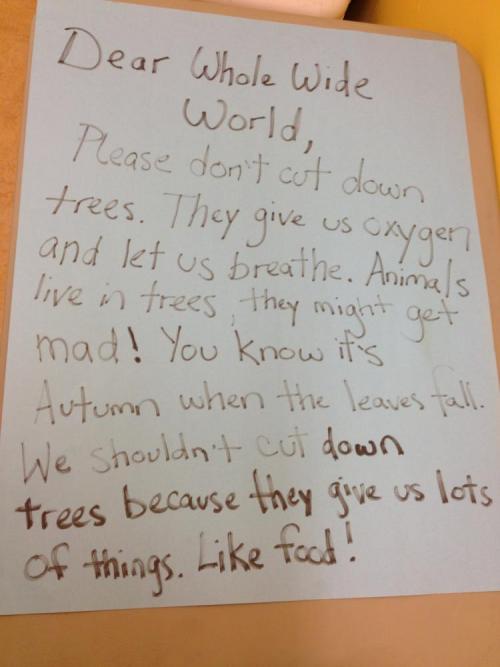 Dear Whole Wide
World,
Please don't cut down
trees. They give us oxygen
and let us breathe. Animals
live in trees, they might get
mad! You know it's
Autumn when the leaves fall.
We shouldn't cut down
trees because they give us lots
of things. Like food!